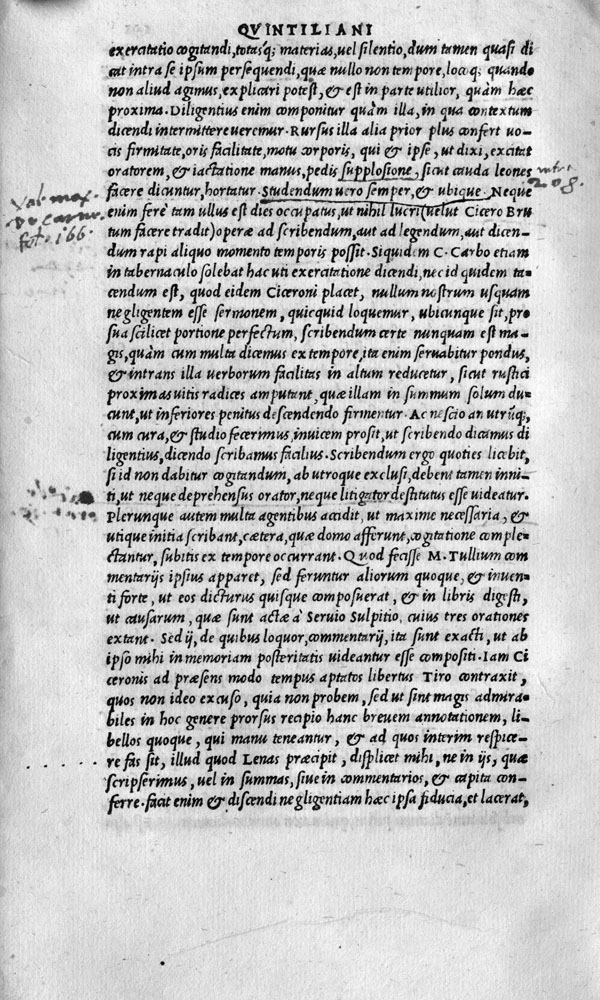 QVINTILIANI
exercitatio cogitandi, totasq; materias, uel silentio, dum tamen quasi di
cat intra se ipsum persequendi, quæ nullo non tempore, locoq; quando
non aliud agimus, explicari potest, & est in parte utilior, quàm hæc
proxima. Diligentius enim componitur quàm illa, in qua contextum
dicendi intermittere ueremur. Rursus illa alia prior plus confert uo-
cis firmitate, oris facilitate, motu corporis, qui & ipse, ut dixi, excitat
oratorem, & iactatione manus, pedis supplosione, sicut cauda leones
facere dicuntur, hortatur. Studendum uero semper, & ubique. Neque
enim ferè tam ullus est dies occupatus, ut nihil lucri (uelut Cicero Bru
tum facere tradit) operæ ad scribendum, aut ad legendum, aut dicen-
dum rapi aliquo momento temporis possit. Siquidem C. Carbo etiam
in tabernaculo solebat hac uti exercitatione dicendi, nec id quidem ta-
cendum est, quod eidem Ciceroni placet, nullum nostrum usquam
negligentem esse sermonem, quicquid loquemur, ubicunque sit, pro
sua scilicet portione perfectum, scribendum certe nunquam est ma-
gis, quàm cum multa dicemus ex tempore, ita enim seruabitur pondus,
& intrans illa uerborum facilitas in altum reducetur, sicut rustici
proximas uitis radices amputant, quæ illam in summum solum du-
cunt, ut inferiores penitus descendendo firmentur. Ac nescio an utrũq;,
cum cura, & studio fecerimus, inuicem prosit, ut scribendo dicamus di
ligentius, dicendo scribamus facilius. Scribendum ergo quoties licebit,
si id non dabitur cogitandum, ab utroque exclusi, debent tamen inni-
ti, ut neque deprehensus orator, neque litigator destitutus esse uideatur.
Plerunque autem multa agentibus accidit, ut maxime necessaria, &
utique initia scribant, cætera, quæ domo afferunt, cogitatione comple-
ctantur, subitis ex tempore occurrant. Quod fecisse M. Tullium com
mentarijs ipsius apparet, sed feruntur aliorum quoque, & inuen-
ti forte, ut eos dicturus quisque composuerat, & in libris digesti,
ut causarum, quæ sunt actæ à Seruio Sulpitio, cuius tres orationes
extant. Sed ij, de quibus loquor, commentarij, ita sunt exacti, ut ab
ipso mihi in memoriam posteritatis uideantur esse compositi. Iam Ci
ceronis ad præsens modo tempus aptatos libertus Tiro contraxit,
quos non ideo excuso, quia non probem, sed ut sint magis admira-
biles in hoc genere prorsus recipio hanc breuem annotationem, li-
bellos quoque, qui manu teneantur, & ad quos interim respice-
re fas sit, illud quod Lenas præcipit, displicet mihi, ne in ijs, quæ
scripserimus, uel in summas, siue in commentarios, & capita con-
ferre. facit enim & discendi negligentiam hæc ipsa fiducia, et lacerat,
Val. max.
fol. 166.
208.